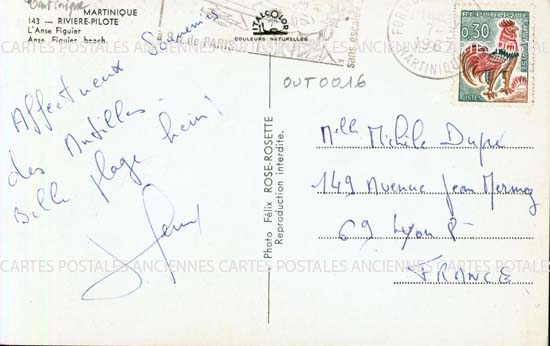 Martinique
MARTINIQUE
143 — RIVIERE-PILOTE
L'Anse Figuier
Anse Figuier beach
à 8h de PARIS
sans escale
ITALCOLOR
COULEURS NATURELLES
FORT
1967
MARTINIQUE
REPUBLIQUE
0,30
POSTES
OUT0016
Souvenirs
Affectueux
des Antilles -
Belle plage hein!
Photo Félix ROSE-ROSETTE
Reproduction interdite.
Melle Michèle Dupré
149 Avenue Jean Mermoz
69 Lyon 8e
FRANCE
CARTES POSTALES ANCIENNES CARTES POSTALES ANCIENNES CARTES POSTALES ANCIENNES